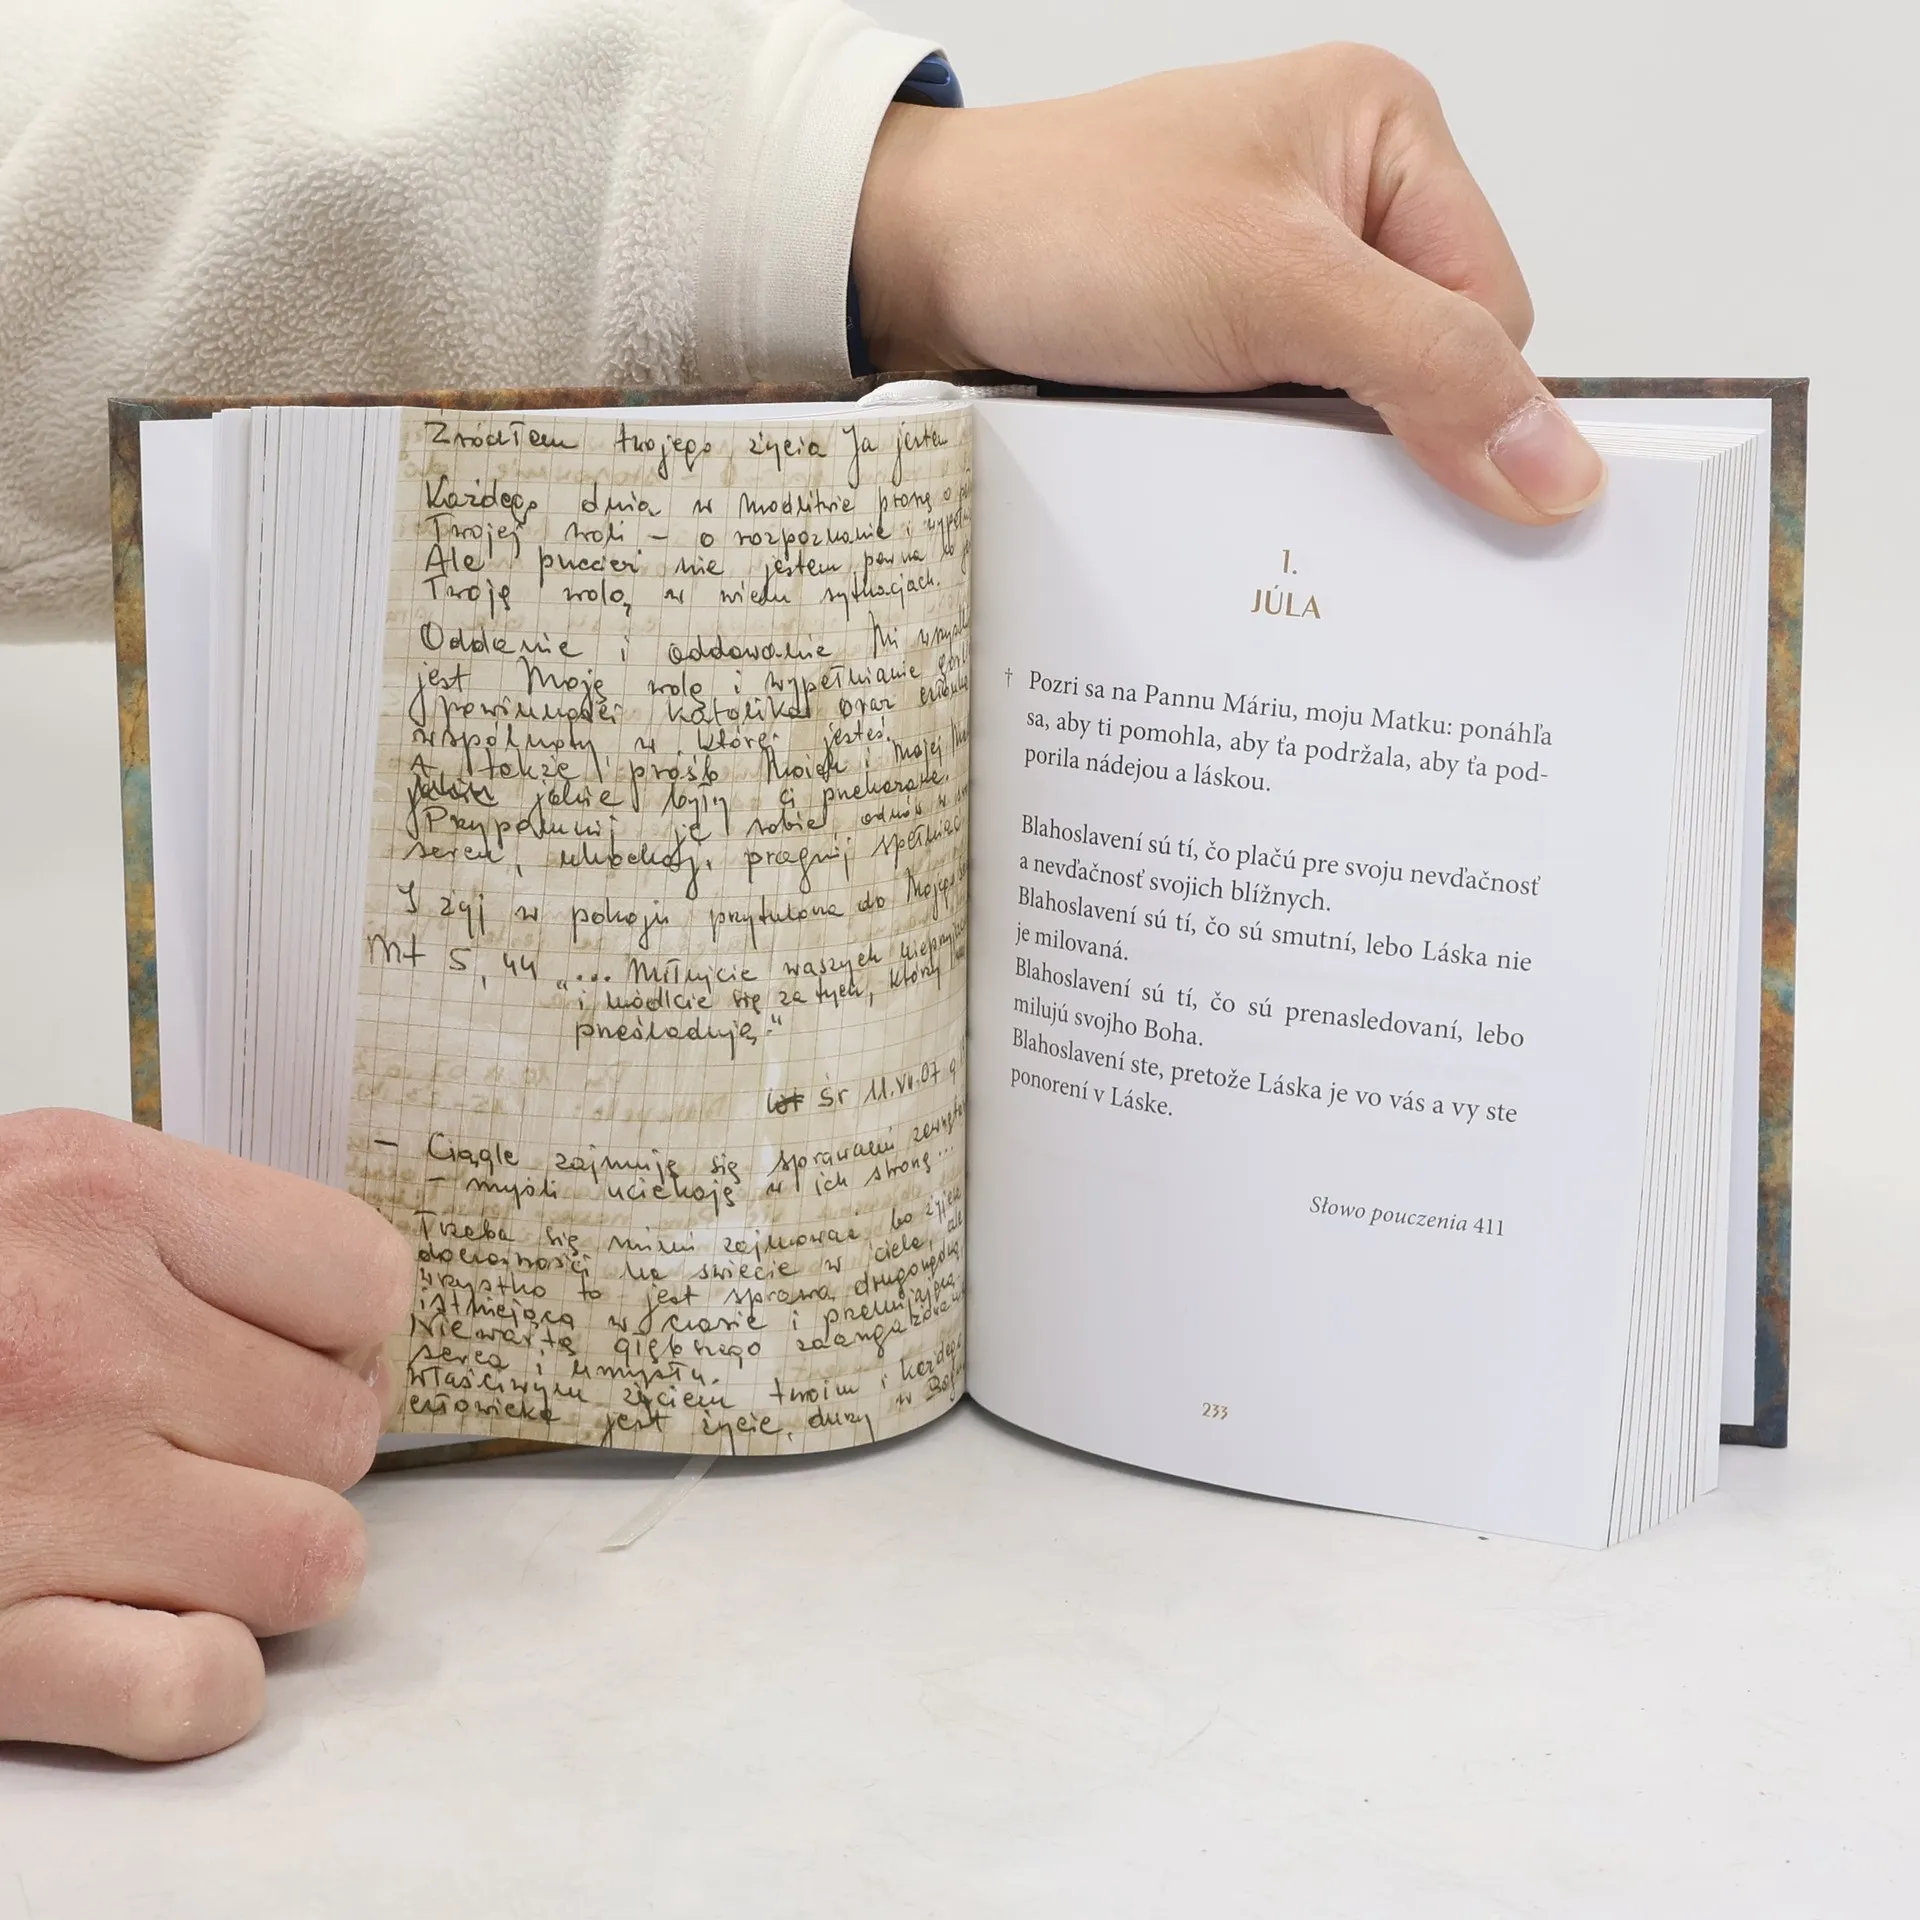 Źródłem twojego życia Ja jestem
Każdego dnia w modlitwie proszę o
Twojej woli – o rozpoznanie i
Ale przecież nie jestem pewna co
Twoją wolą w wielu sytuacjach.
Oddanie i oddawanie Mi
jest Moją wolą i wypełnianie
powinności katolika oraz
wspólnoty w której jesteś.
A także i próśb Moich i Mojej
jakie były ci przekazane.
Przypomnij je sobie, odnów w
sercu, ukochaj, pragnij spełniać
I żyj w pokoju przytulona do Mojego
Mt 5, 44 „... Miłujcie waszych
i módlcie się za tych, którzy
prześladują."
śr 11.VII.07 g
– Ciągle zajmuję się sprawami
– myśli uciekają w ich stronę...
Trzeba się nimi zajmować bo żyjesz
na świecie w ciele, ale
wszystko to jest sprawą drugorzędną,
istniejącą w czasie i przemijającą
Nie warto głębszego
serca i umysłu.
Właściwym życiem twoim i każdego
człowieka jest życie duszy w
1.
JÚLA
† Pozri sa na Pannu Máriu, moju Matku: ponáhľa
sa, aby ti pomohla, aby ťa podržala, aby ťa pod-
porila nádejou a láskou.
Blahoslavení sú tí, čo plačú pre svoju nevďačnosť
a nevďačnosť svojich blížnych.
Blahoslavení sú tí, čo sú smutní, lebo Láska nie
je milovaná.
Blahoslavení sú tí, čo sú prenasledovaní, lebo
milujú svojho Boha.
Blahoslavení ste, pretože Láska je vo vás a vy ste
ponorení v Láske.
Słowo pouczenia 411
233